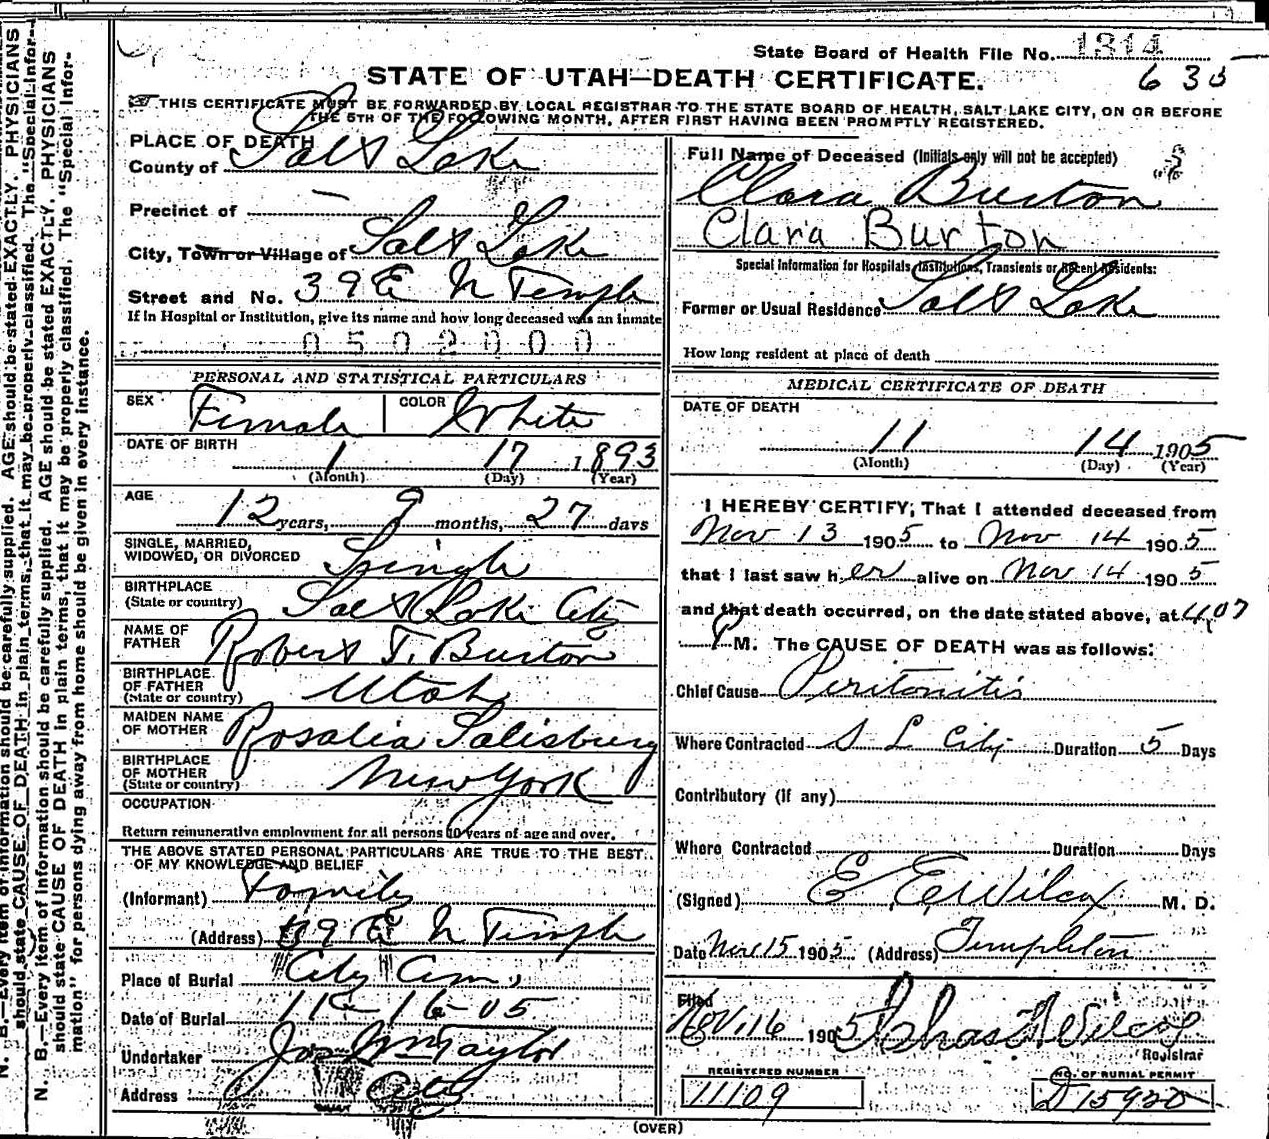 State Board of Health File No. 1314
635
STATE OF UTAH—DEATH CERTIFICATE.
THIS CERTIFICATE MUST BE FORWARDED BY LOCAL REGISTRAR TO THE STATE BOARD OF HEALTH, SALT LAKE CITY, ON OR BEFORE
THE 5TH OF THE FOLLOWING MONTH, AFTER FIRST HAVING BEEN PROMPTLY REGISTERED.
PLACE OF DEATH
County of Salt Lake
Precinct of —
City, Town or Village of Salt Lake
Street and No. 39 E N Temple
If in Hospital or Institution, give its name and how long deceased was an inmate
0502000
PERSONAL AND STATISTICAL PARTICULARS
SEX Female COLOR White
DATE OF BIRTH 1 17 1893
(Month) (Day) (Year)
AGE 12 years, 9 months, 27 days
SINGLE, MARRIED,
WIDOWED, OR DIVORCED Single
BIRTHPLACE
(State or country) Salt Lake City
NAME OF
FATHER Robert T. Burton
BIRTHPLACE
OF FATHER
(State or country) Utah
MAIDEN NAME
OF MOTHER Rosalia Salisbury
BIRTHPLACE
OF MOTHER
(State or country) New York
OCCUPATION
Return remunerative employment for all persons 10 years of age and over.
THE ABOVE STATED PERSONAL PARTICULARS ARE TRUE TO THE BEST
OF MY KNOWLEDGE AND BELIEF
(Informant) Family
(Address) 39 E N Temple
Place of Burial City Cem,
Date of Burial 11-16-05
Undertaker Jos Wm Taylor
Address City
Full Name of Deceased (Initials only will not be accepted)
Clara Burton
Clara Burton
Special Information for Hospitals, Institutions, Transients or Recent Residents:
Former or Usual Residence Salt Lake
How long resident at place of death
MEDICAL CERTIFICATE OF DEATH
DATE OF DEATH
11 14 1905
(Month) (Day) (Year)
I HEREBY CERTIFY, That I attended deceased from
Nov 13 1905 to Nov 14 1905
that I last saw her alive on Nov 14 1905
and that death occurred, on the date stated above, at 4.07
P M. The CAUSE OF DEATH was as follows:
Chief Cause Peritonitis
Where Contracted S L City Duration 5 Days
Contributory (if any)
Where Contracted Duration Days
(Signed) E E Wilcox M. D.
Date Nov 15 1905 (Address) Templeton
Filed
Nov. 16 1905 Chas F. Wilcox
Registrar
REGISTERED NUMBER
11109
NO. OF BURIAL PERMIT
D 15920
(OVER)
N. B.—Every item of information should be carefully supplied. AGE should be stated EXACTLY. PHYSICIANS
should state CAUSE OF DEATH in plain terms, that it may be properly classified. The "Special Infor-
N. B.—Every item of information should be carefully supplied. AGE should be stated EXACTLY. PHYSICIANS
should state CAUSE OF DEATH in plain terms, that it may be properly classified. The "Special Infor-
mation" for persons dying away from home should be given in every instance.